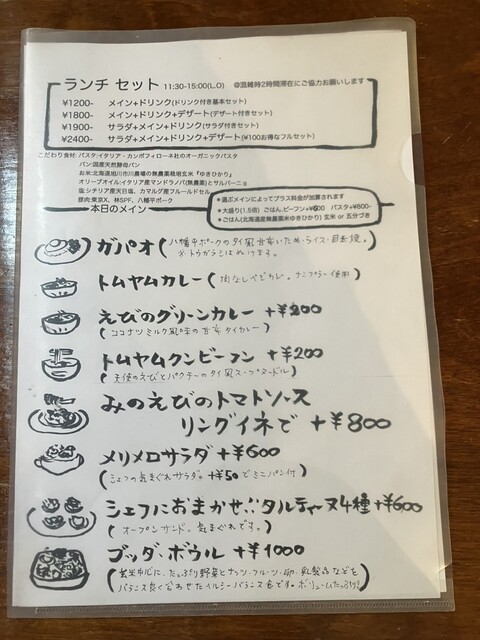 ランチ セット 11:30-15:00(L.O) @混雑時2時間滞在にご協力お願いします
¥1200- メイン+ドリンク(ドリンク付き基本セット)
¥1800- メイン+ドリンク+デザート(デザート付きセット)
¥1900- サラダ+メイン+ドリンク(サラダ付きセット)
¥2400- サラダ+メイン+ドリンク+デザート(¥100お得なフルセット)
こだわり食材: パスタ:イタリア・カンポフィローネ社のオーガニックパスタ
パン:国産天然酵母パン
お米:北海道旭川市川農場の無農薬栽培玄米『ゆきひかり』
オリーブオイル:イタリア産マンドラノバ(無農薬)とサルバーニョ
塩:シチリア産天日塩、カマルグ産フルールドセル
豚肉:東京X、林SPF、八幡平ポーク
*選ぶメインによってプラス料金が加算されます
*大盛り(1.5倍) ごはん,ビーフン+¥600 パスタ+¥800-
*ごはん(北海道産無農薬米ゆきひかり) 玄米 or 五分づき
本日のメイン
ガパオ (八幡平ポークのタイ風甘辛いため・ライス・目玉焼。
※トウガラシはぬけます。
トムヤムカレー (肉なしベジカレー。ナンプラー使用)
えびのグリーンカレー +¥200
(ココナツミルク風味の甘辛タイカレー)
トムヤムクンビーフン +¥200
(天使のえびとパクチーのタイ風スープヌードル)
みのえびのトマトソース
リングイネで +¥800
メリメロサラダ +¥600
(シェフの気まぐれサラダ。+¥50でミニパン付)
シェフにおまかせ!!タルティーヌ4種+¥600
(オープンサンド。気まぐれです。)
ブッダ・ボウル +¥1000
(玄米中心に、たっぷり野菜とナッツ・フルーツ・卵・乳製品などを
バランス良く合わせたヘルシーバランス食です。ボリュームたっぷり!)